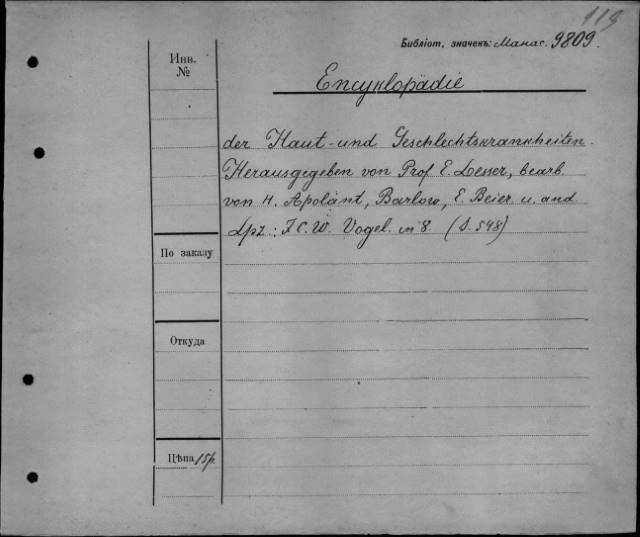 119
Библіот. значекъ: Манас. 9809.
Инв.
№
Encyklopädie
der Haut- und Geschlechtskrankheiten.
Herausgegeben von Prof. E. Lesser, bearb.
von H. Apolant, Barlow, E. Beier u. and.
Lpz.: F.C.W. Vogel. in 8. (S. 548)
По заказу
Откуда
Цѣна 15р.